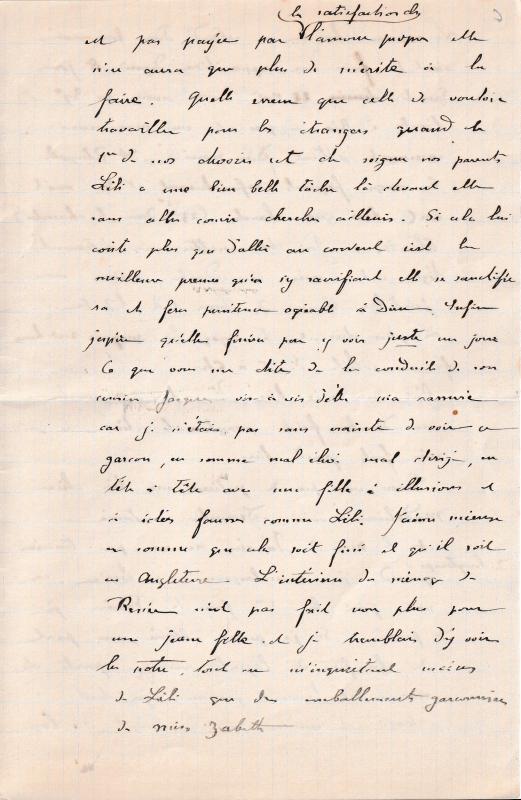 la satisfaction de
et pas payée par l'amour propre elle
n'en aura que plus de mérite à la
faire. Quelle erreur que celle de vouloir
travailler pour les étrangers quand le
1er de nos devoirs est de soigner nos parents
Lili a une bien belle tâche là devant elle
sans aller courir chercher ailleurs. Si cela lui
coûte plus que d'aller au couvent c'est la
meilleure preuve qu'en s'y sacrifiant elle se sanctifie
ra et fera pénitence agréable à Dieu. Enfin
j'espère qu'elle finira par y voir juste un jour
Ce que vous me dites de la conduite de son
cousin Jacques vis à vis d'elle m'a ramurée
car je n'étais pas sans crainte de voir ce
garçon, en somme mal élevé mal dirigé, en
tête à tête avec une fille à illusions et
à idées fausses comme Lili. J'aime mieux
en somme que cela soit fini et qu'il soit
en Angleterre. L'intérieur du ménage de
Renée n'est pas fait non plus pour
une jeune fille et je tremblais d'y voir
la notre, tout en m'inquiétant moins
de Lili que des emballements garçonniers
de miss Zabeth